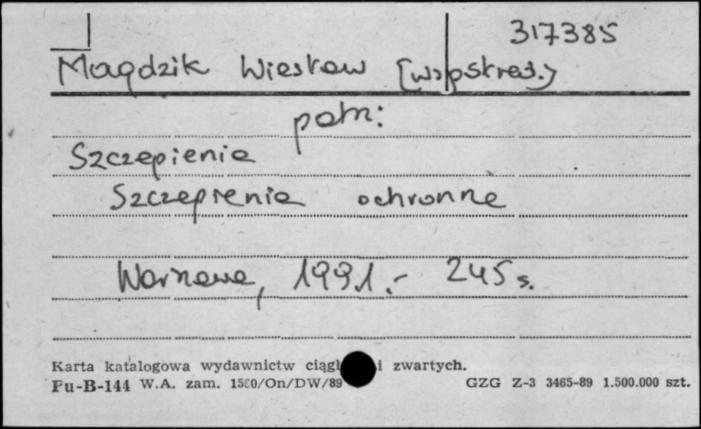 317385
Magdzik Wiesław [wspskred.]
patrz:
Szczepienia
Szczepienia ochronne
Warszawa, 1991.- 245 s.
Karta katalogowa wydawnictw ciągł i zwartych.
Pu-B-144 W.A. zam. 1580/On/DW/89
GZG Z-3 3465-89 1.500.000 szt.